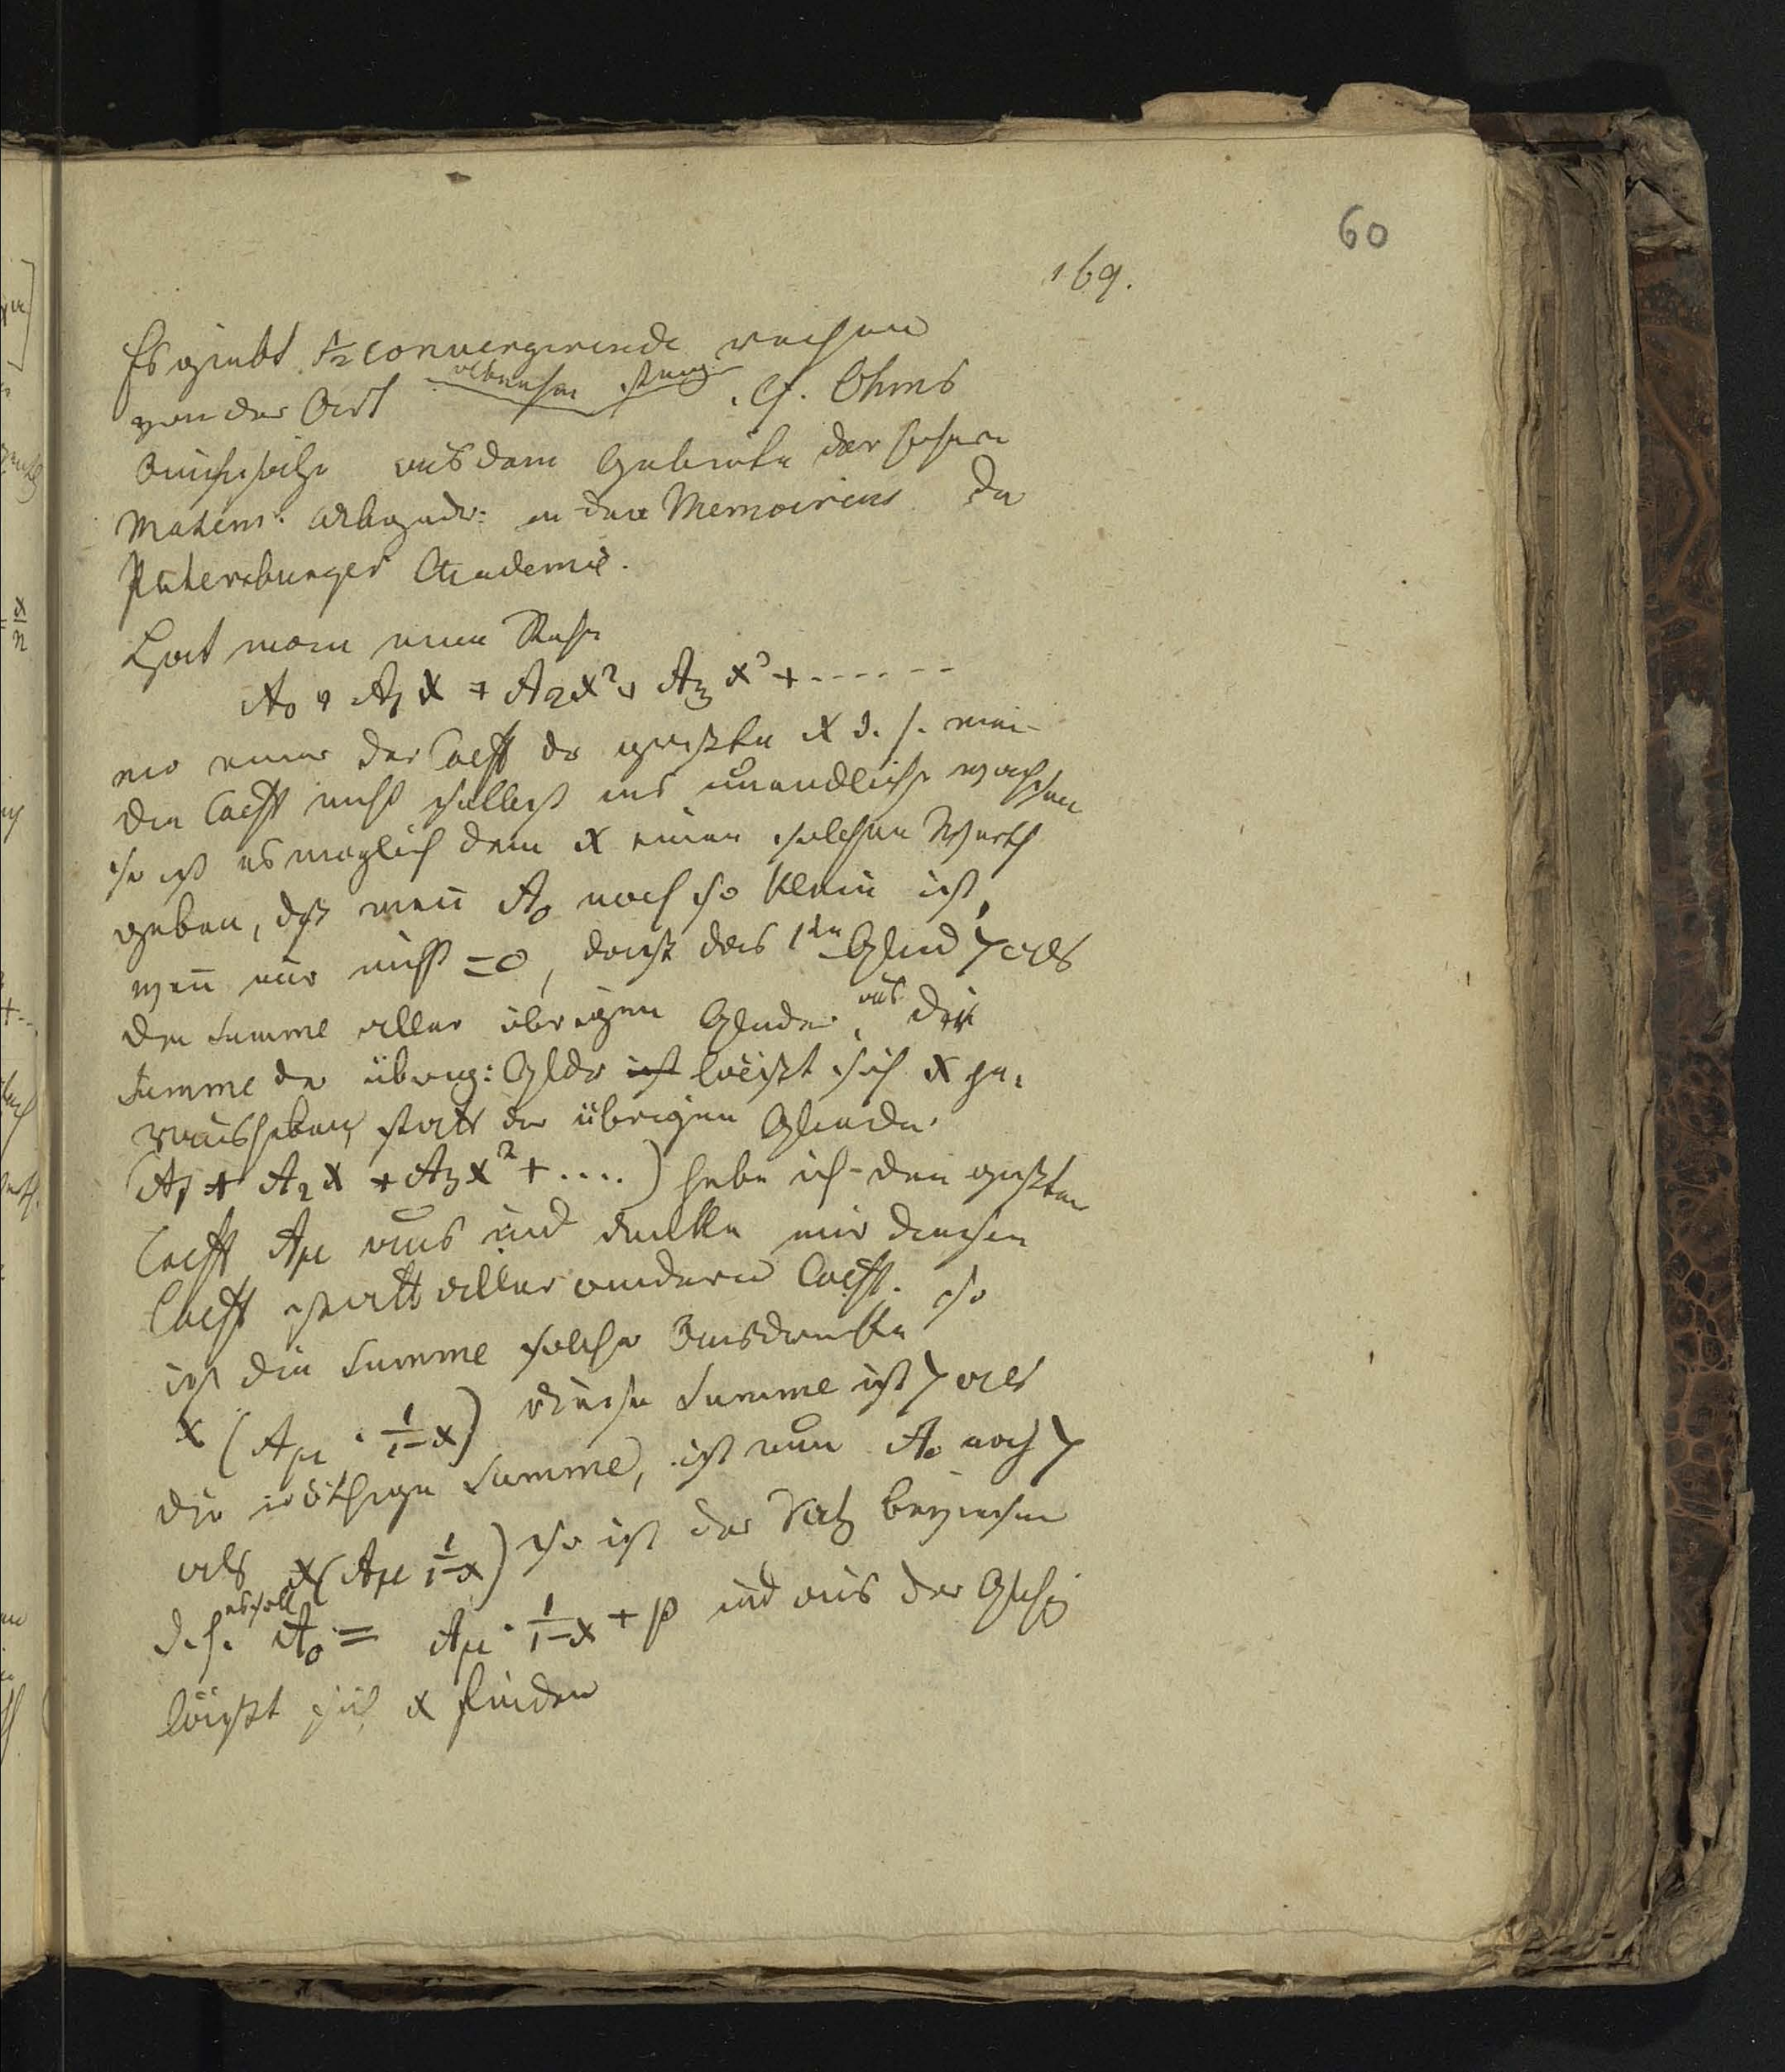 60
169.
Es giebt ½ convergirende reihen
von der Art . cf. Ohms
Aufsätze aus dem Gebiete der höhern
Mathem: in den Memoiren der
Petersburger Academie.
Hat man eine Reihe
A₀ + A₁x + A₂x² + A₃x³ + ......
wo einer der Coeff der größte ist d. h. wenn
die Coeff nicht selbst ins unendliche wachsen
so ist es möglich dem x einen solchen Werth
geben, dß wenn A₀ noch so klein ist,
wenn nur nicht = 0, doch das 1te Glied > als
die Summe aller übrigen Glieder, aus der
Summe der übrig: Gldr ist läßt sich x he-
rausheben, statt der übrigen Glieder
(A₁ + A₂x + A₃x² + ....) hebe ich den größten
Coeff Aμ aus und denke mir diesen
Coeff statt aller andern Coeff. so
ist die Summe solcher Ausdrücke
x (Aμ · 1/1-x) diese Summe ist > als
die vorige Summe, ist nun A₀ noch >
als x(Aμ 1/1-x) so ist der Satz bewiesen
d. h. es soll A₀ = Aμ · 1/1-x + p und aus der Glchg
läßt sich x finden